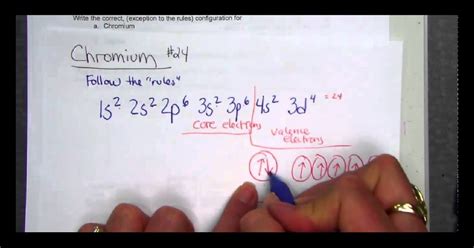 Write the correct, (exception to the rules) configuration for
a. Chromium
Chromium #24
Follow the "rules"
1s² 2s² 2p⁶ 3s² 3p⁶ 4s² 3d⁴ = 24
core electrons
valence
electrons